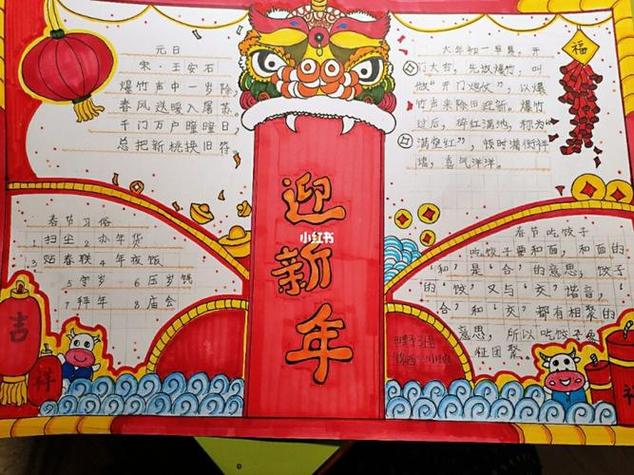 元日
宋·王安石
爆竹声中一岁除,
春风送暖入屠苏。
千门万户曈曈日,
总把新桃换旧符
春节习俗
1 扫尘 2 办年货
3 贴春联 4 年夜饭
5 守岁 6 压岁钱
7 拜年 8 庙会
吉
祥
迎
小红书
新
年
福
大年初一早晨,开
门大吉,先放爆竹,叫
做"开门炮仗",以爆
竹声来除旧迎新。爆竹
过后,碎红满地,称为
满堂红",
喜气洋洋。
春节吃饺子
吃饺子要和面,和面的
"和"是"合"的意思,饺子
的"饺"又与"交"谐音,"
合"和"交"都有相聚的
意思,所以吃饺子
征团聚。